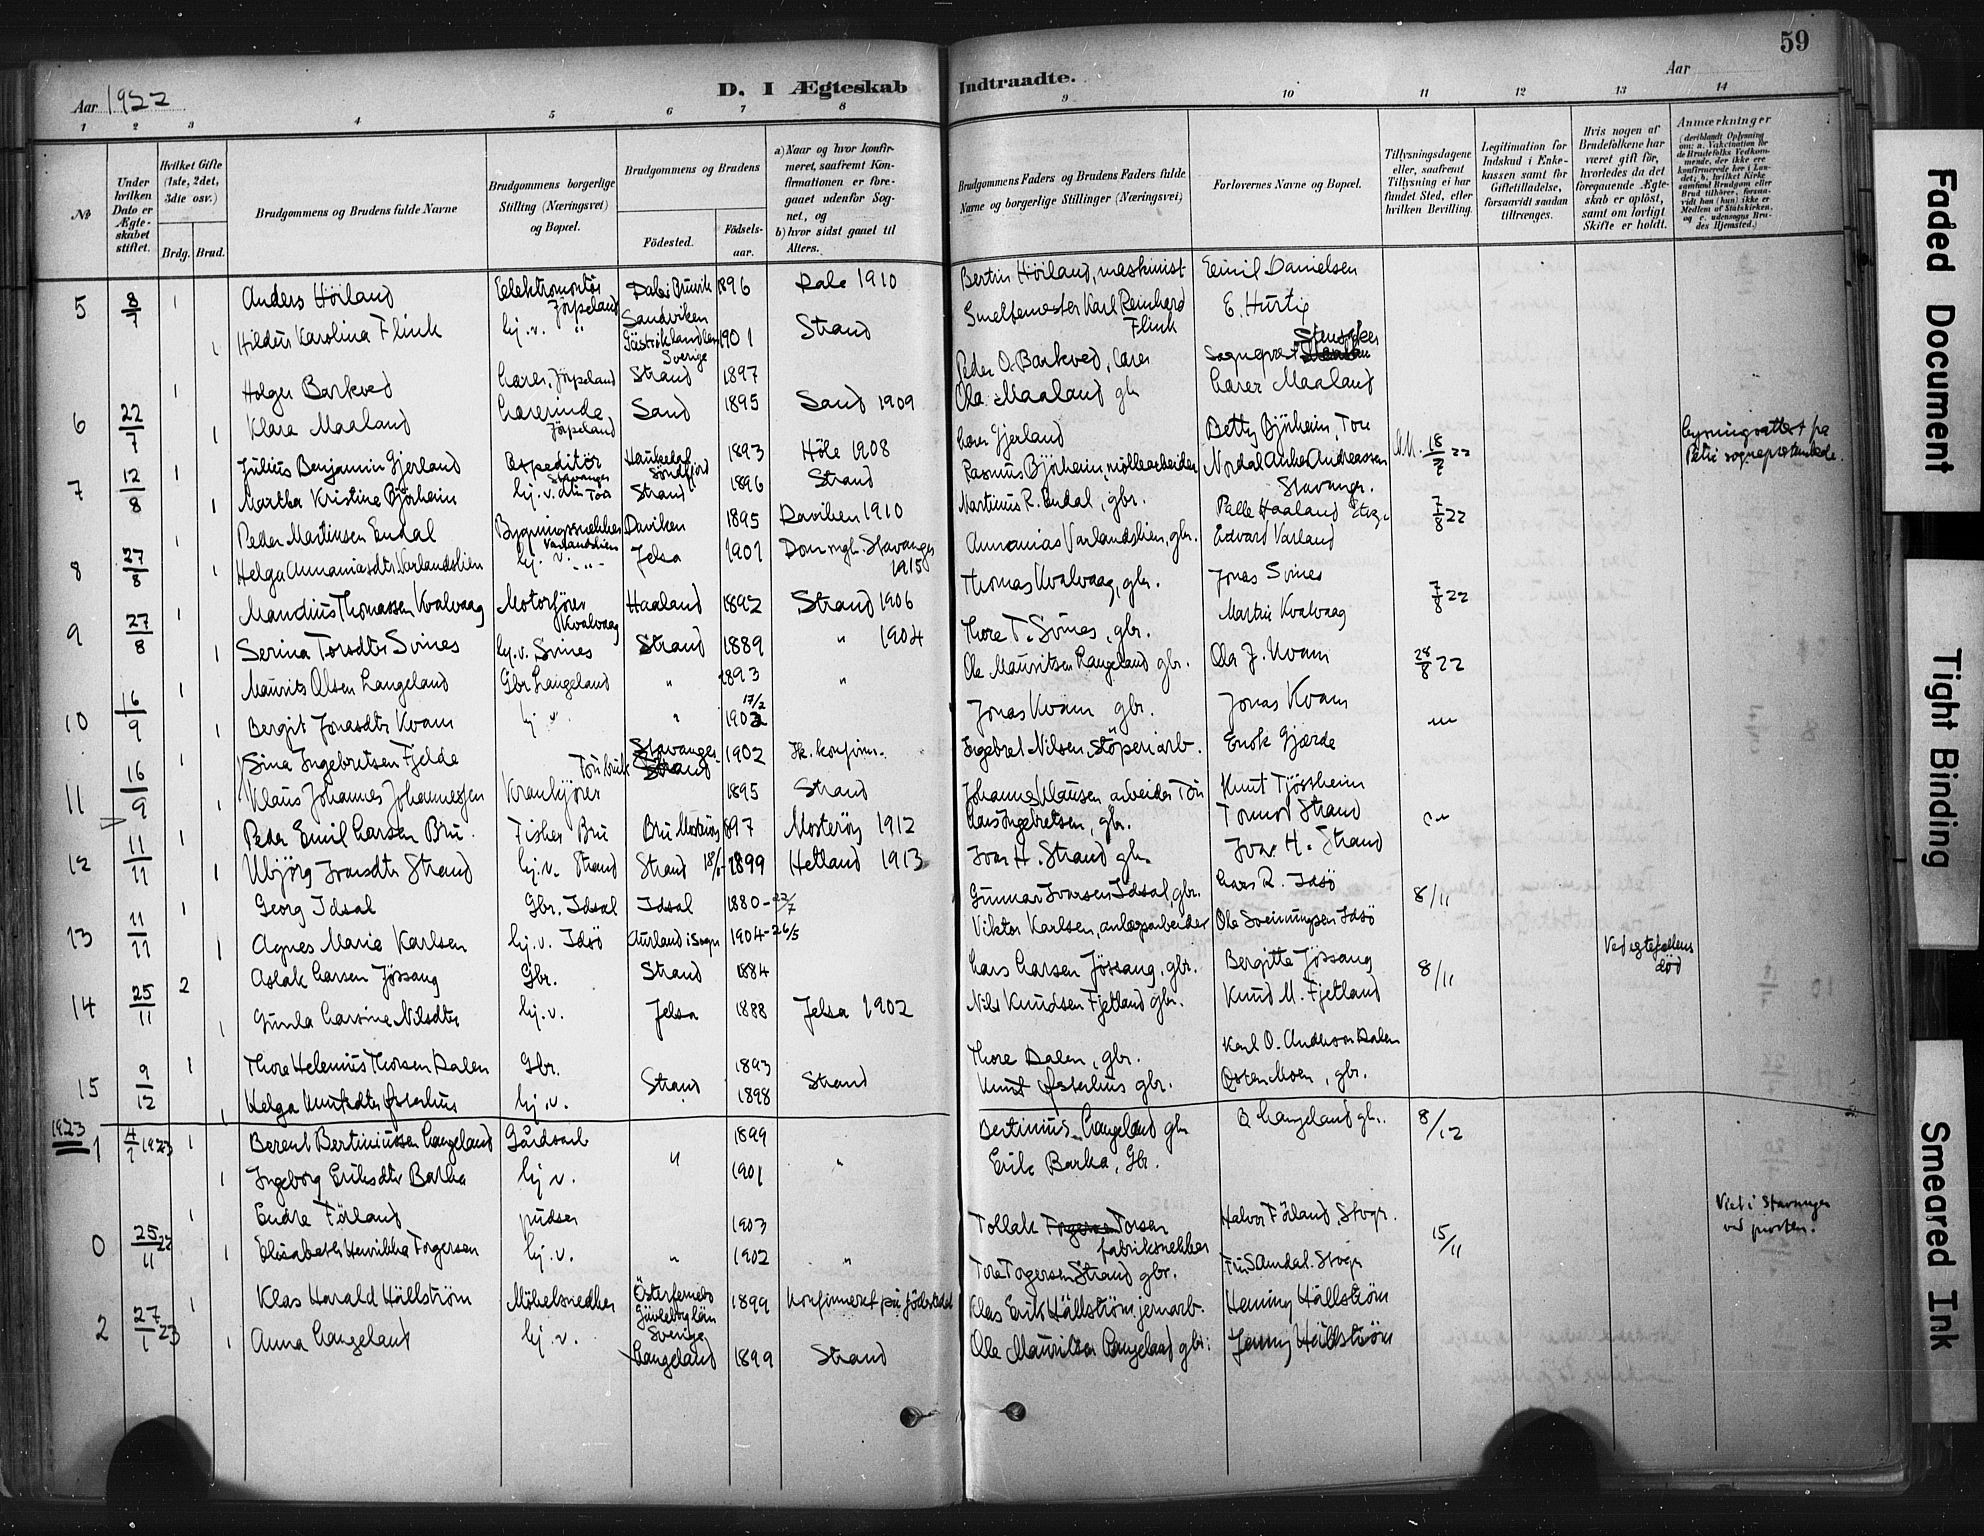 59
D. I Ægteskab Indtraadte.
Aar 1922
Aar
1 2 3 4 5 6 7 8 9 10 11 12 13 14
№
Under hvilken Dato er Ægteskabet stiftet.
Hvilket Gifte (1ste, 2det, 3die osv.)
Brdg. Brud.
Brudgommens og Brudens fulde Navne
Brudgommens borgerlige Stilling (Næringsvei) og Bopæl.
Brudgommens og Brudens
Födested.
Födsels-aar.
a) Naar og hvor konfirmeret, saafremt Konfirmationen er foregaaet udenfor Sognet, og
b) hvor sidst gaaet til Alters.
Brudgommens Faders og Brudens Faders fulde Navne og borgerlige Stillinger (Næringsvei)
Forlovernes Navne og Bopæl.
Tillysningsdagene eller, saafremt Tillysning ei har fundet Sted, efter hvilken Bevilling.
Legitimation for Indskud i Enkekassen samt for Gifletilladelse, forsaavidt saadan tiltrænges.
Hvis nogen af Brudefolkene har været gift för, hvorledes da det foregaaende Ægteskab er oplöst, samt om lovligt Skifte er holdt.
Anmærkninger
(deriblandt Oplysning om: a. Vakcination for de Brudefolks Vedkommende, der ikke ere konfirmerede her i Landet; b. hvilket Kirkesamfund Brudgom eller Brud tilhörer, forsaavidt han (hun) ikke er Medlem af Statskirken, og c. udensogns Brudes Hjemsted.)
5 8/7 1 Anders Höiland Elektromontör Jörpeland Dale i Bruvik 1896 Dale 1910 Bertin Höiland, maskinist Emil Danielsen
1 Hildur Karolina Flink hj. v. " Sandviken Gästrikland len Sverige 1901 Strand Smeltemester Karl Reinhard Flink E. Hurtig
6 22/7 1 Holger Barkved Lærer, Jörpeland Strand 1897 Peder O. Barkved, lærer Sogneprest
1 Klara Maaland Lærerinde, Jörpeland Sand 1895 Sand 1909 Ola Maaland gbr Lærer Maaland
7 12/8 1 Julius Benjamin Gjerland Expeditör Stavanger Haukedal Söndfjord 1893 Höle 1908 Lærer Gjerland Betty Björheim, Tou 18/7 22 Lysningsattest fra Petri sogneprestembede.
1 Martha Kristine Björheim hj. v. Tou Strand 1896 Strand Rasmus Björheim, möllearbeider Nordal Anker Andreassen Stavanger.
8 27/8 1 Peder Martinsen Endal Bygningssnekker Varlandslien Daviken 1895 Daviken 1910 Martinus R. Endal, gbr. Palle Haaland Stvgr. 7/8 22
1 Helga Annaniasdtr Varlandslien hj. v. - " - Jelsa 1901 Dom mgh. Stavanger 1915 Annanias Varlandslien, gbr. Edvard Varland
9 27/8 1 Mandius Thomassen Kvalvaag Motorförer Kvalvaag Haaland 1892 Strand 1906 Thomas Kvalvaag, gbr. Jonas Svines 7/8 22
1 Serina Torsdtr Svines hj. v. Svines Strand 1889 " 1904 Thore T. Svines, gbr. Martin Kvalvaag
10 16/9 1 Maurits Olsen Langeland Gbr Langeland " 1893 " Ole Mauritsen Langeland gbr. Ola J. Kvam 28/8 22
1 Bergit Jonasdtr Kvam hj. v. " 17/2 1902 Jonas Kvam gbr. Jonas Kvam
11 16/9 1 Sina Ingebretsen Fjelde Tou bruk Stavanger Strand 1902 Ik. konfirm. Ingebret Nilsen, Stöperiarb. Enok Gjerde "
1 Klaus Johannes Johannessen Krankjörer 1895 Strand Johannes Klausen arbeider Tou Knut Tjössheim
12 11/11 1 Peder Emil Larsen Bru. Fisker Bru Bru Mosteröy 1897 Mosteröy 1912 Lars Ingebretsen, gbr. Tormod Strand
1 Ubjörg Ivarsdtr Strand hj. v. Strand Strand 1899 Hetland 1913 Ivar H. Strand gbr Ivar H. Strand
13 11/11 1 Georg Idsal Gbr. Idsal Idsal 1880 - 22/7 Gunnar Ivarsen Idsal, gbr. Lars R. Idsö 8/11
1 Agnes Marie Karlsen hj. v. Idsö Aurland i Sogn 1904 - 26/5 Viktor Karlsen, anlægsarbeider Ole Sveinungsen Idsö
14 25/11 2 Aslak Larsen Jössang Gbr. Strand 1884 Lars Larsen Jössang, gbr. Bergitte Jössang 8/11 Ved egtefællens död
1 Gunla Larsine Nilsdtr hj. v. Jelsa 1888 Jelsa 1902 Nils Knudsen Fjetland gbr. Knud M. Fjetland
15 9/12 1 Thore Helenius Thorsen Dalen Gbr. Strand 1893 Strand Thore Dalen, gbr. Karl O. Andersen Dalen
1 Helga Knutsdtr Østerhus hj. v. 1898 Knut Østerhus gbr. Østen Moen, gbr.
1923
1 4/1 1923 1 Berent Bertiniussen Langeland Gårdsarb " 1899 " Bertinius Langeland gbr O Langeland gbr. 8/12
1 Ingeborg Eriksdtr Barka hj v. 1901 Erik Barka, Gbr.
0 25/11 22 1 Endre Förland pudser 1903 Tollak Torsen fabriksnekker Halvor Förland, Stvgr. 15/11 Viet i Stavanger ved presten.
1 Elisabeth Henrikka Torgersen hj. v. " 1902 " Tore Torgersen Strand gbr. Amdal. Stvgr
2 27/1 23 1 Klas Harald Hällström Möbelsnedker Österfernebo Gävleborg län Sverige 1899 Konfirmeret på födestedet Klas Erik Hällström jernarb. Henning Hällström
1 Anna Langeland hj. v. Langeland 1899 Strand Ole Mauritsen Langeland gbr. Jenny Hällström
Faded Document
Tight Binding
Smeared Ink